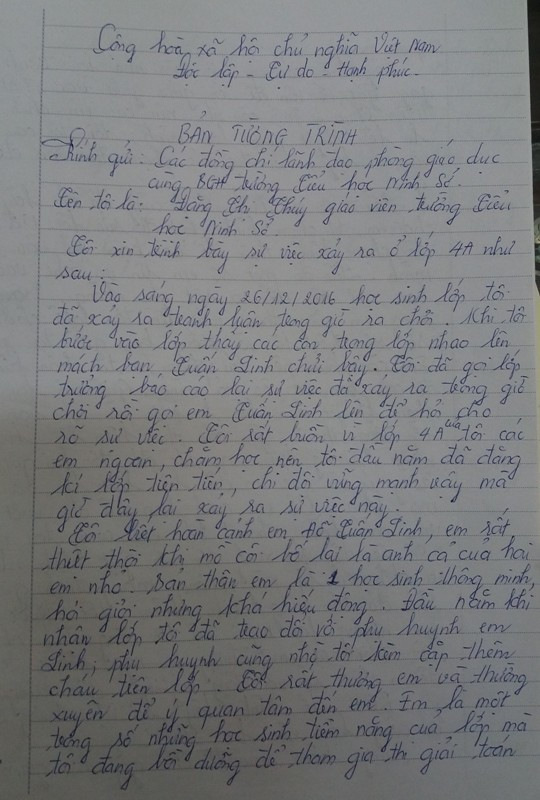 Cộng hoà xã hội chủ nghĩa Việt Nam
Độc lập - Tự do - Hạnh phúc.
BẢN TƯỜNG TRÌNH
Kính gửi: Các đồng chí lãnh đạo phòng giáo dục
cùng BGH trường Tiểu học Ninh Sở.
Tên tôi là: Đặng Thị Thúy giáo viên trường Tiểu
học Ninh Sở
Tôi xin trình bày sự việc xảy ra ở lớp 4A như
sau:
Vào sáng ngày 26/12/2016 học sinh lớp tôi
đã xảy ra tranh luận trong giờ ra chơi. Khi tôi
bước vào lớp thấy các con trong lớp nhao lên
mách bạn Tuấn Linh chửi bậy. Tôi đã gọi lớp
trưởng báo cáo lại sự việc đã xảy ra trong giờ
chơi rồi gọi em Tuấn Linh lên để hỏi cho
rõ sự việc. Tôi rất buồn vì lớp 4A của tôi các
em ngoan, chăm học nên tôi đầu năm đã đăng
kí lớp tiên tiến, chi đội vững mạnh vậy mà
giờ đây lại xảy ra sự việc này.
Tôi biết hoàn cảnh em Đỗ Tuấn Linh, em rất
thiệt thòi khi mồ côi bố lại là anh cả của hai
em nhỏ. Bản thân em là 1 học sinh thông minh,
học giỏi nhưng khá hiếu động. Đầu năm khi
nhận lớp tôi đã trao đổi với phụ huynh em
Linh, phụ huynh cũng nhờ tôi kèm cặp thêm
cháu trên lớp. Tôi rất thương em và thường
xuyên để ý quan tâm đến em. Em là một
trong số những học sinh tiềm năng của lớp mà
tôi đang bồi dưỡng để tham gia thi giải toán